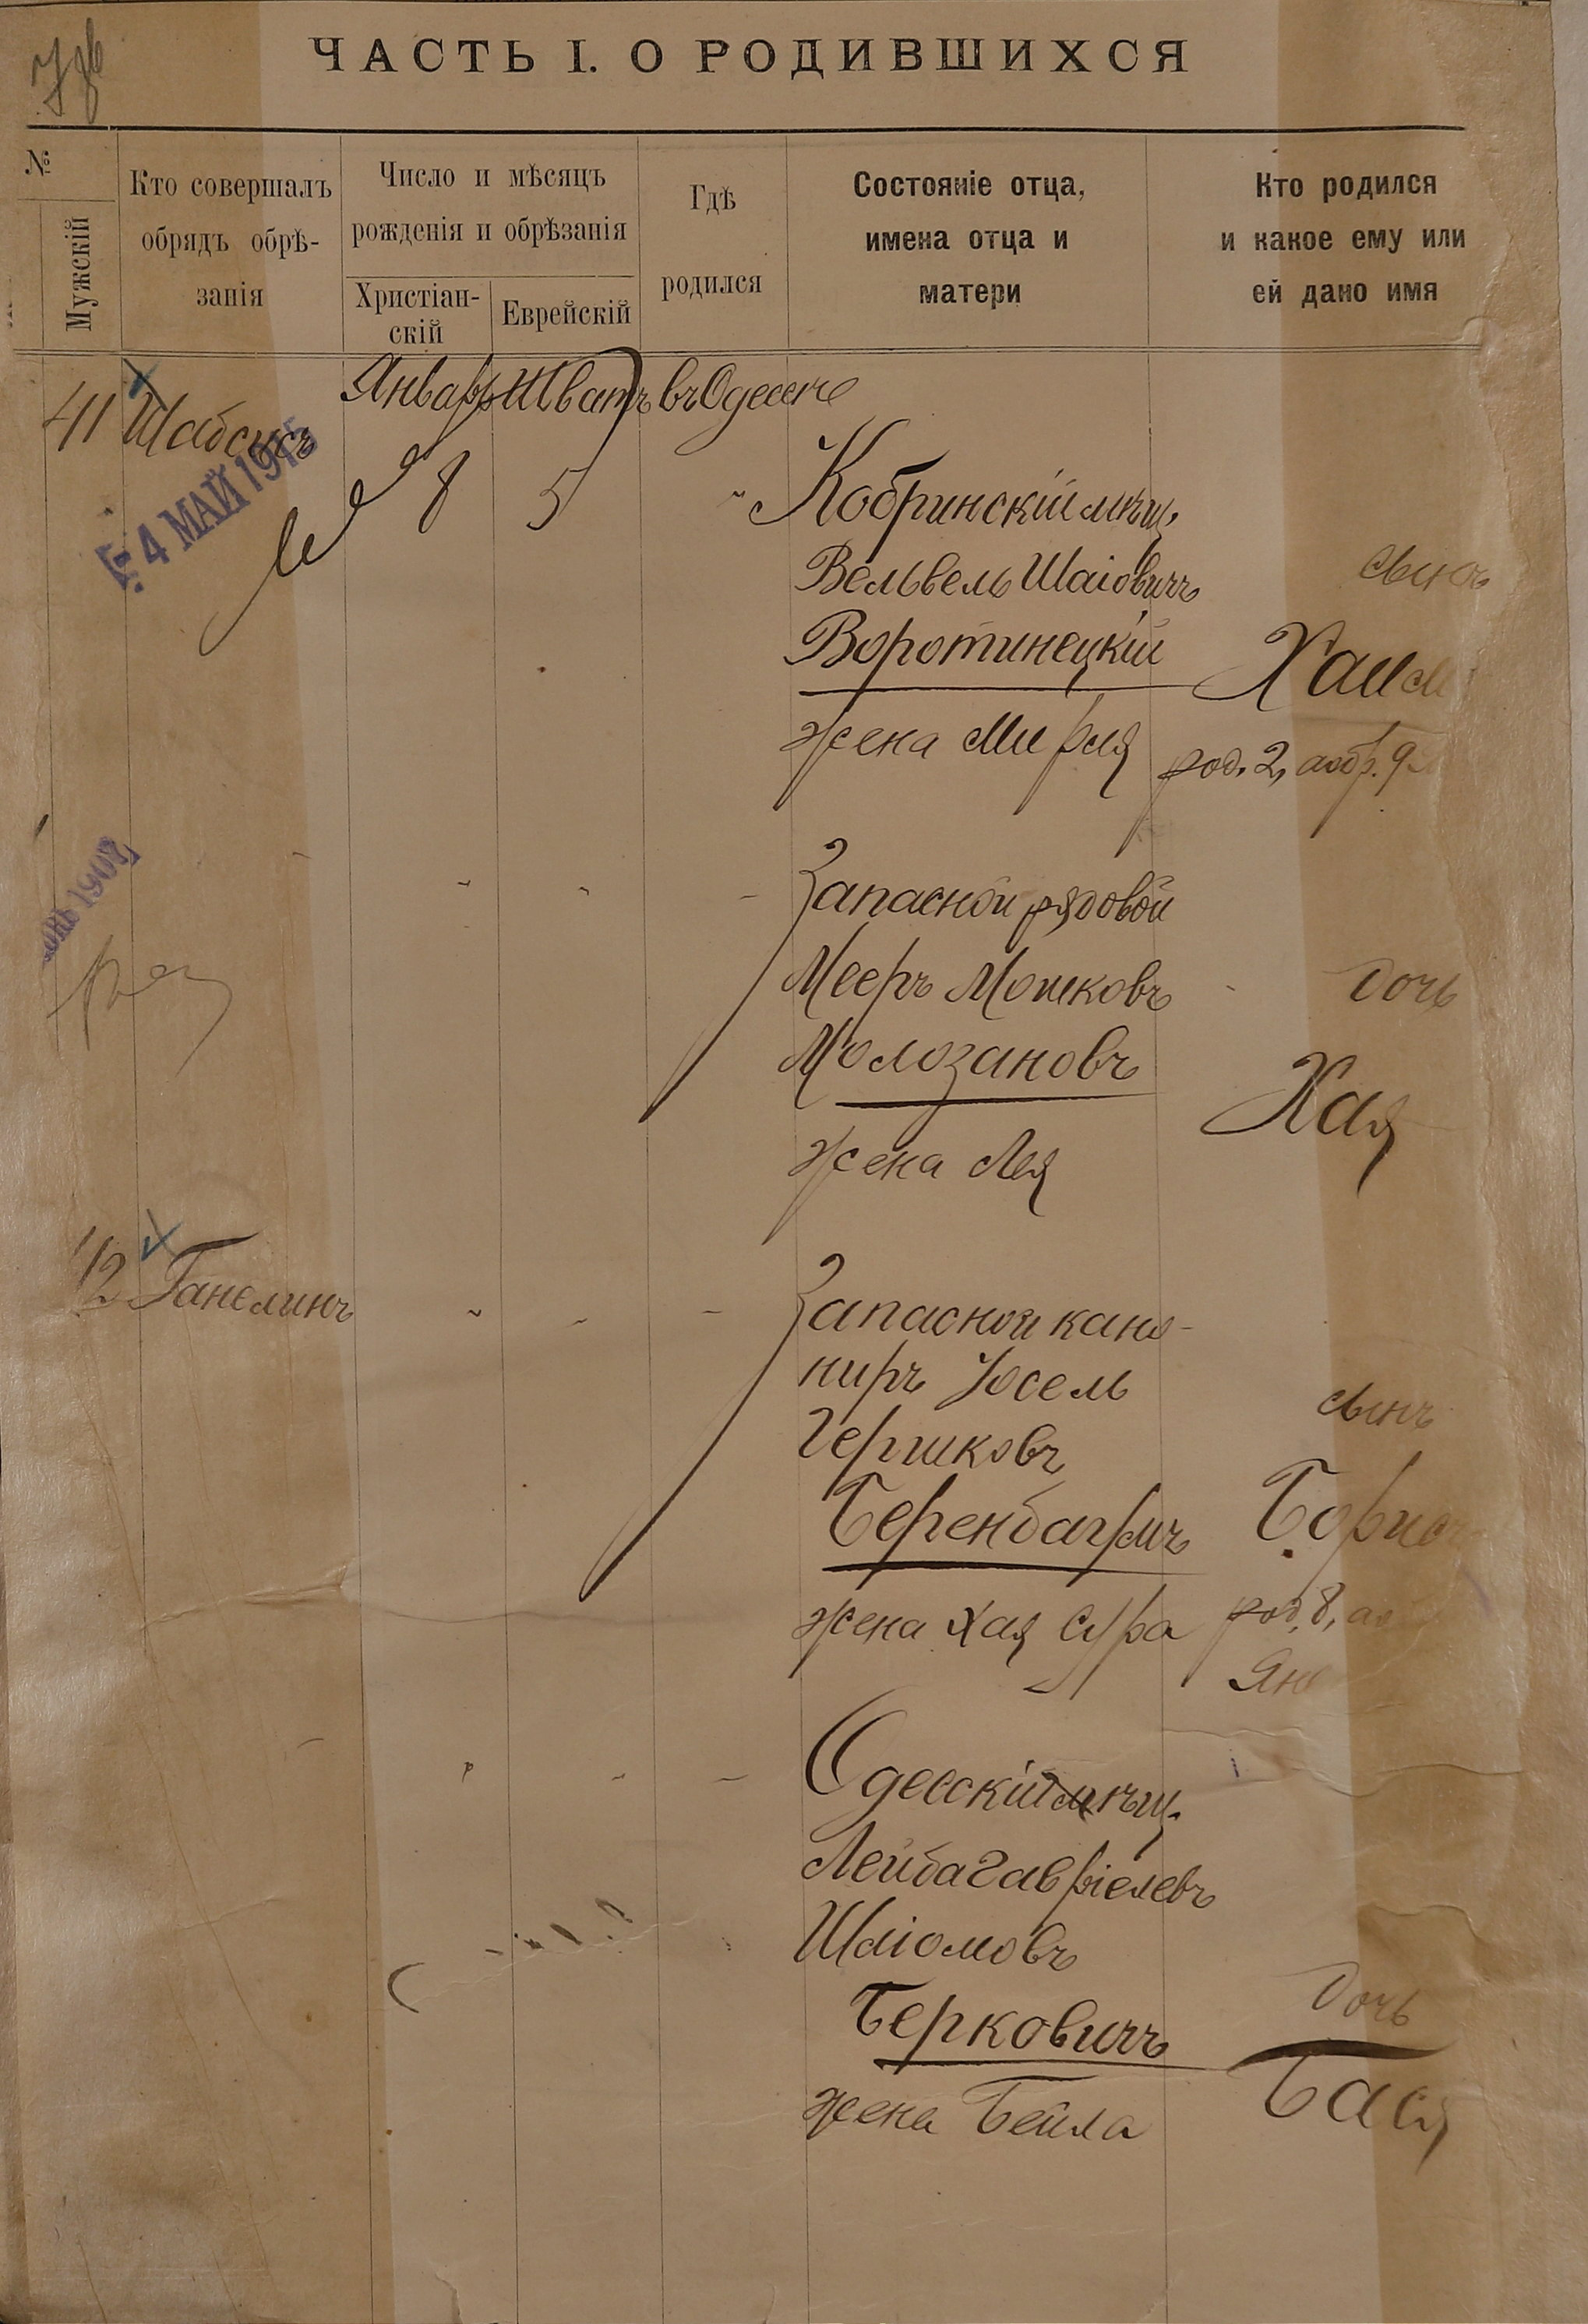 ЧАСТЬ I. О РОДИВШИХСЯ
№
Мужскій
Кто совершалъ
обрядъ обрѣ-
занія
Число и мѣсяцъ
рожденія и обрѣзанія
Христіан-
скій
Еврейскій
Гдѣ
родился
Состояніе отца,
имена отца и
матери
Кто родился
и какое ему или
ей дано имя
Январь Шватъ въ Одессе
41 Шабсисъ
4 МАЙ 1915
8 5 " Кобринскій мѣщ.
Вельвель Шаіовичъ
сынъ
Воротинецкій
Хаим
жена Мирля
род. 2, а обр. 9
1907
Запасной рядовой
Мееръ Мошковъ
дочь
Молозановъ
Хая
жена Лея
12 Ганелинъ
Запасной кано-
ниръ Іосель
сынъ
Гершковъ
Беренбаумъ
Борис
жена Хая Сура
род. 8, а о
Янв
Одесскій мѣщ.
Лейба Гавріелевъ
Шаіомовъ
дочь
Берковичъ
Бася
жена Бейла